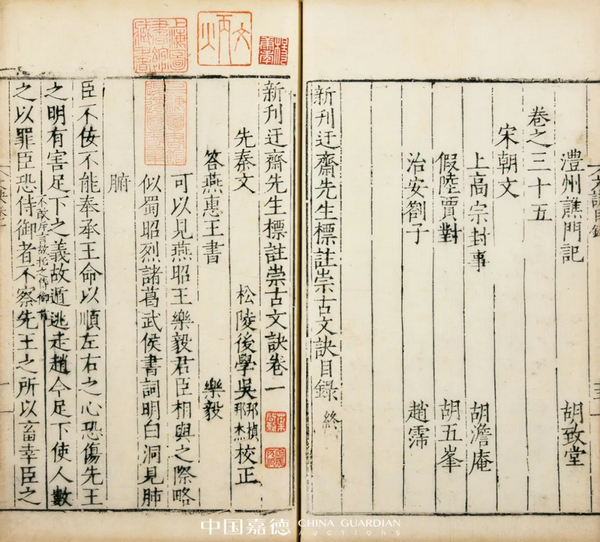 澧州譙門記 胡致堂
卷之三十五
宋朝文
上高宗封事 胡澹庵
假陸賈對 胡五峯
治安劄子 趙霈
新刊迂齋先生標註崇古文訣目錄 終
新刊迂齋先生標註崇古文訣卷一
松陵後學吳邦楨邦杰校正
先秦文
答燕惠王書 樂毅
可以見燕昭王樂毅君臣相與之際略
似蜀昭烈諸葛武侯書詞明白洞見肺
腑
臣不佞不能奉承王命以順左右之心恐傷先王
之明有害足下之義故遁逃走趙今足下使人數
之以罪臣恐侍御者不察先王之所以畜幸臣之
中国嘉德 CHINA GUARDIAN
Auctions